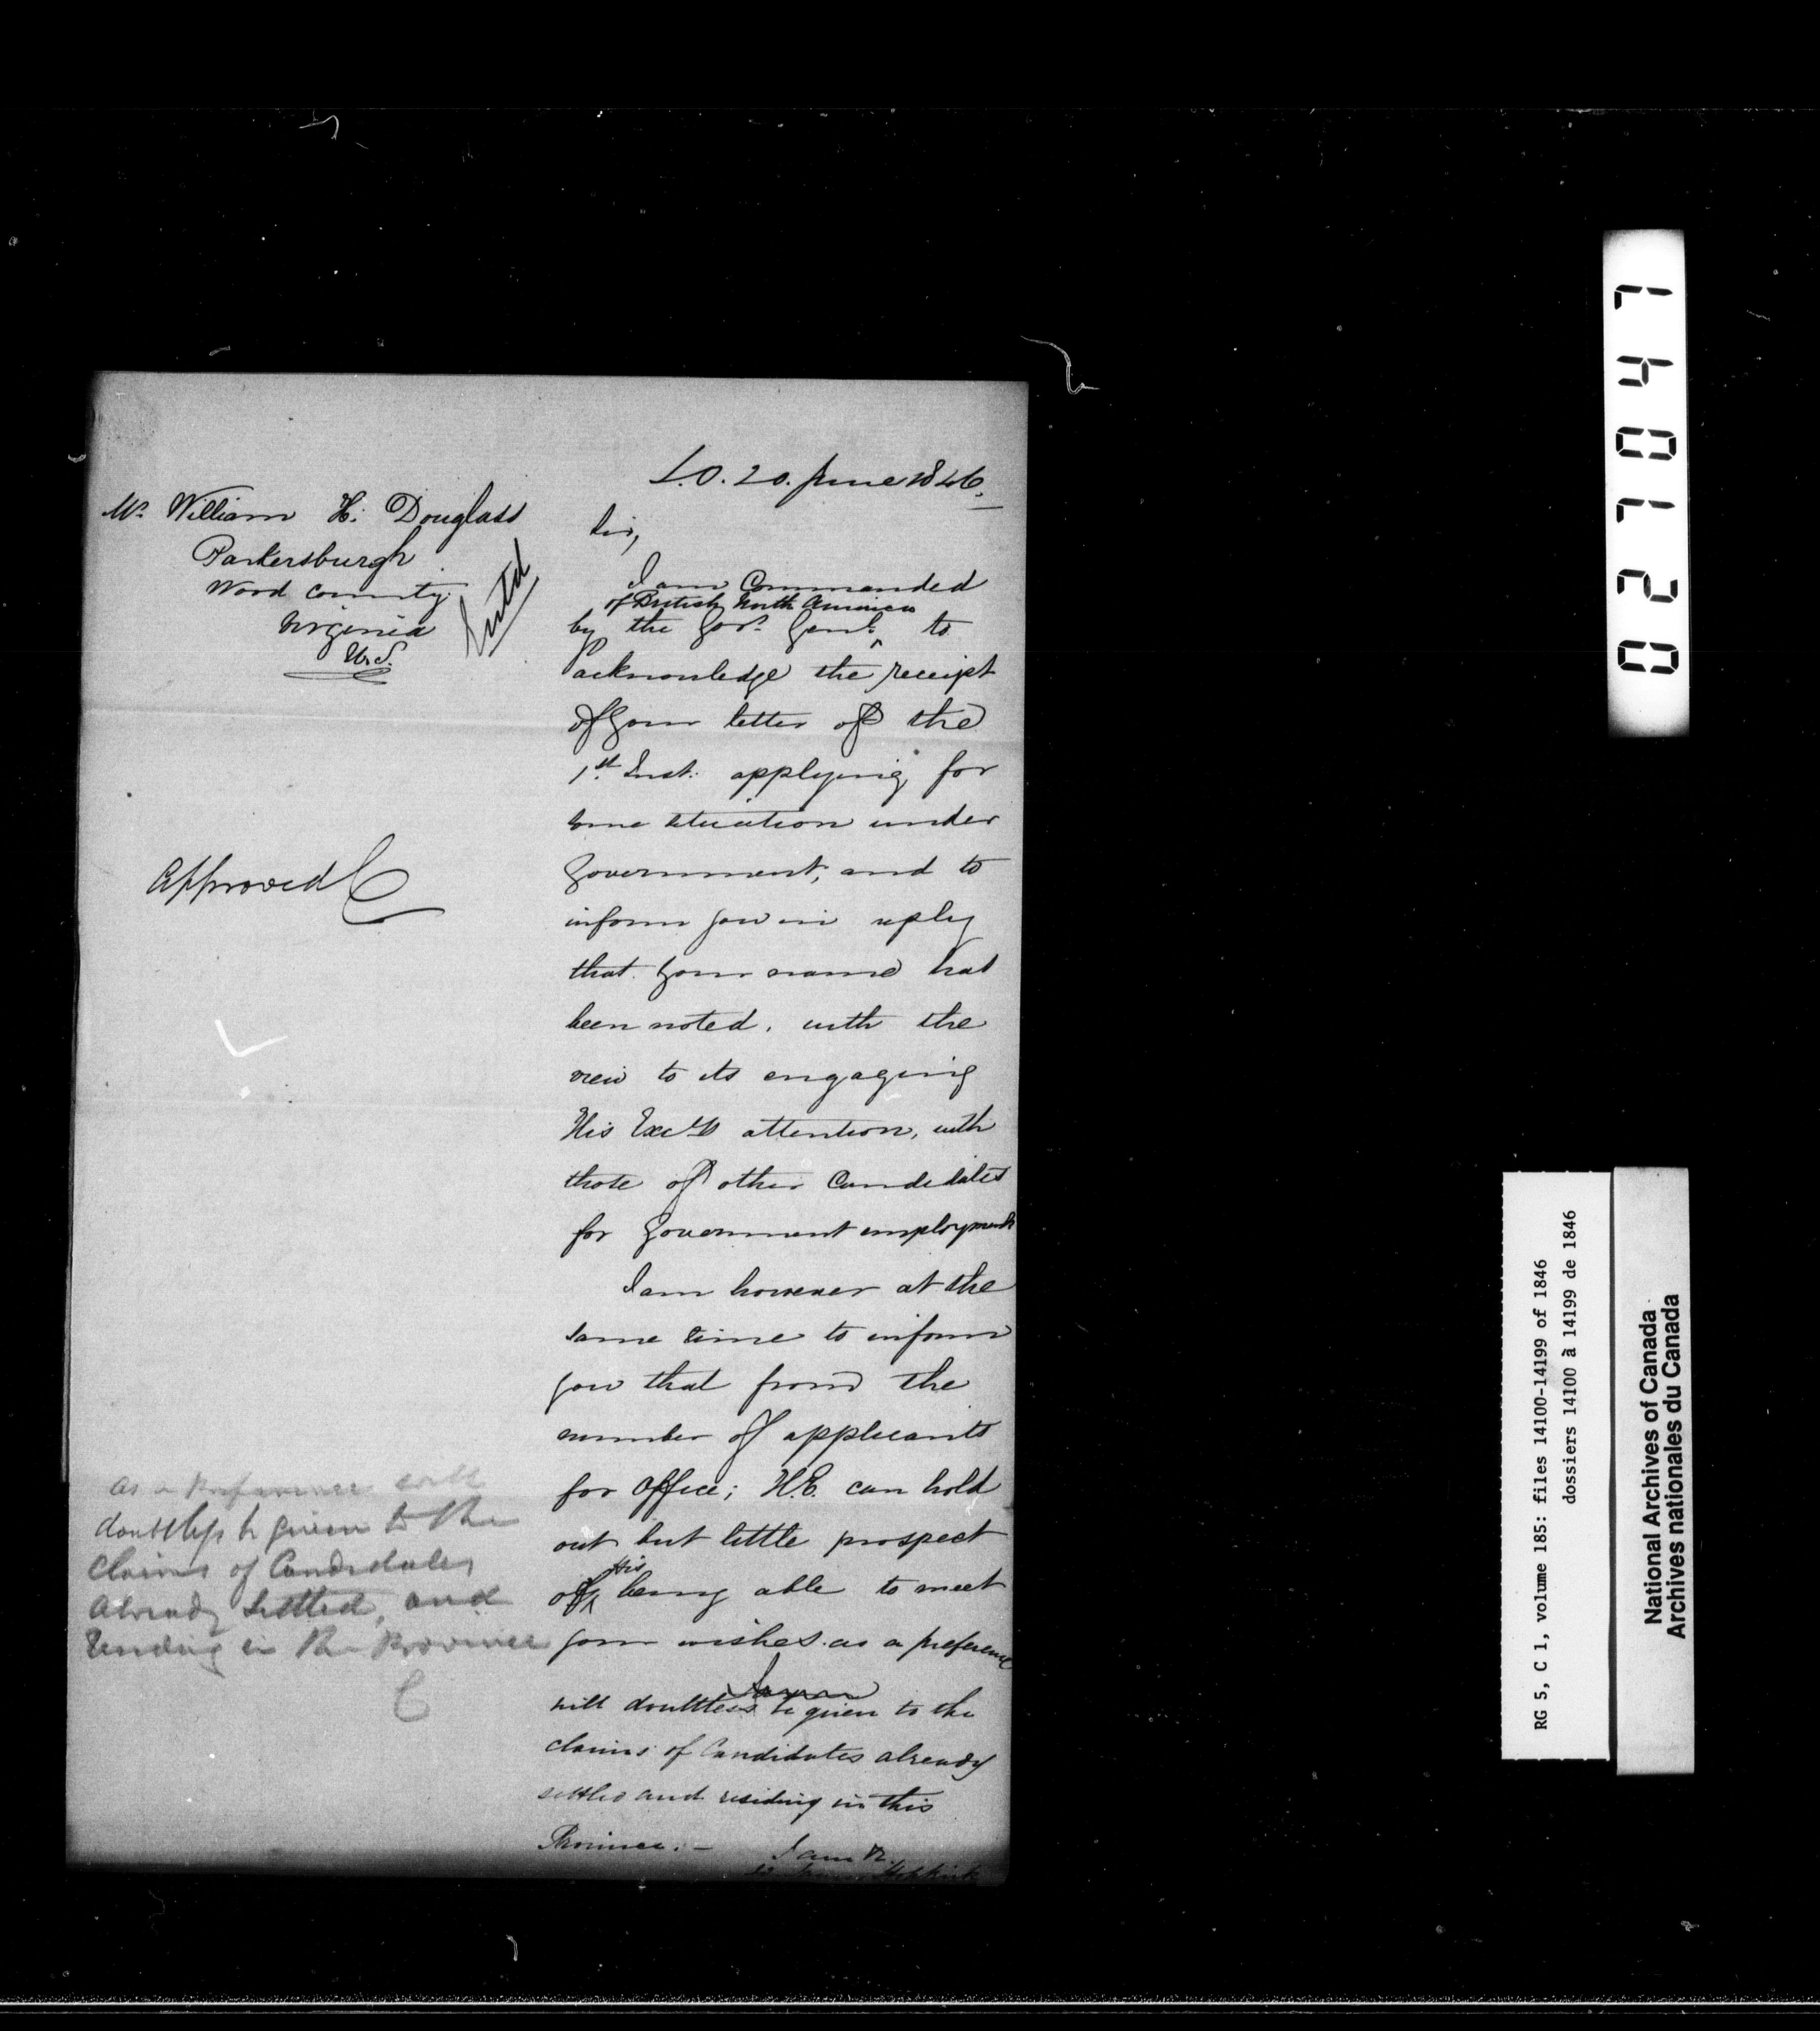 S.O. 20. June 1846.
Mr. William H. Douglass
Parkersburgh
Wood County
Virginia
U.S.
Entd
Approved C
Sir,
I am Commanded
of British North America
by the Govr. Genl. ‸ to
acknowledge the receipt
of your letter of the
1st. Inst. applying for
some situation under
Government, and to
inform you in reply
that your name has
been noted, with the
view to its engaging
His Excys attention, with
those of other Candidates
for Government employment
I am however at the
same time to inform
you that from the
number of applicants
for office; H.E. can hold
out but little prospect
His
of ‸ being able to meet
your wishes as a preference
will doubtless be given to the
claims of Candidates already
settled and residing in this
Province. –
I am &.
Hopkirk
as a preference will
doubtless be given to the
claims of Candidates
already settled, and
residing in the Province
C
027047
RG 5, C 1, volume 185: files 14100-14199 of 1846
dossiers 14100 à 14199 de 1846
National Archives of Canada
Archives nationales du Canada